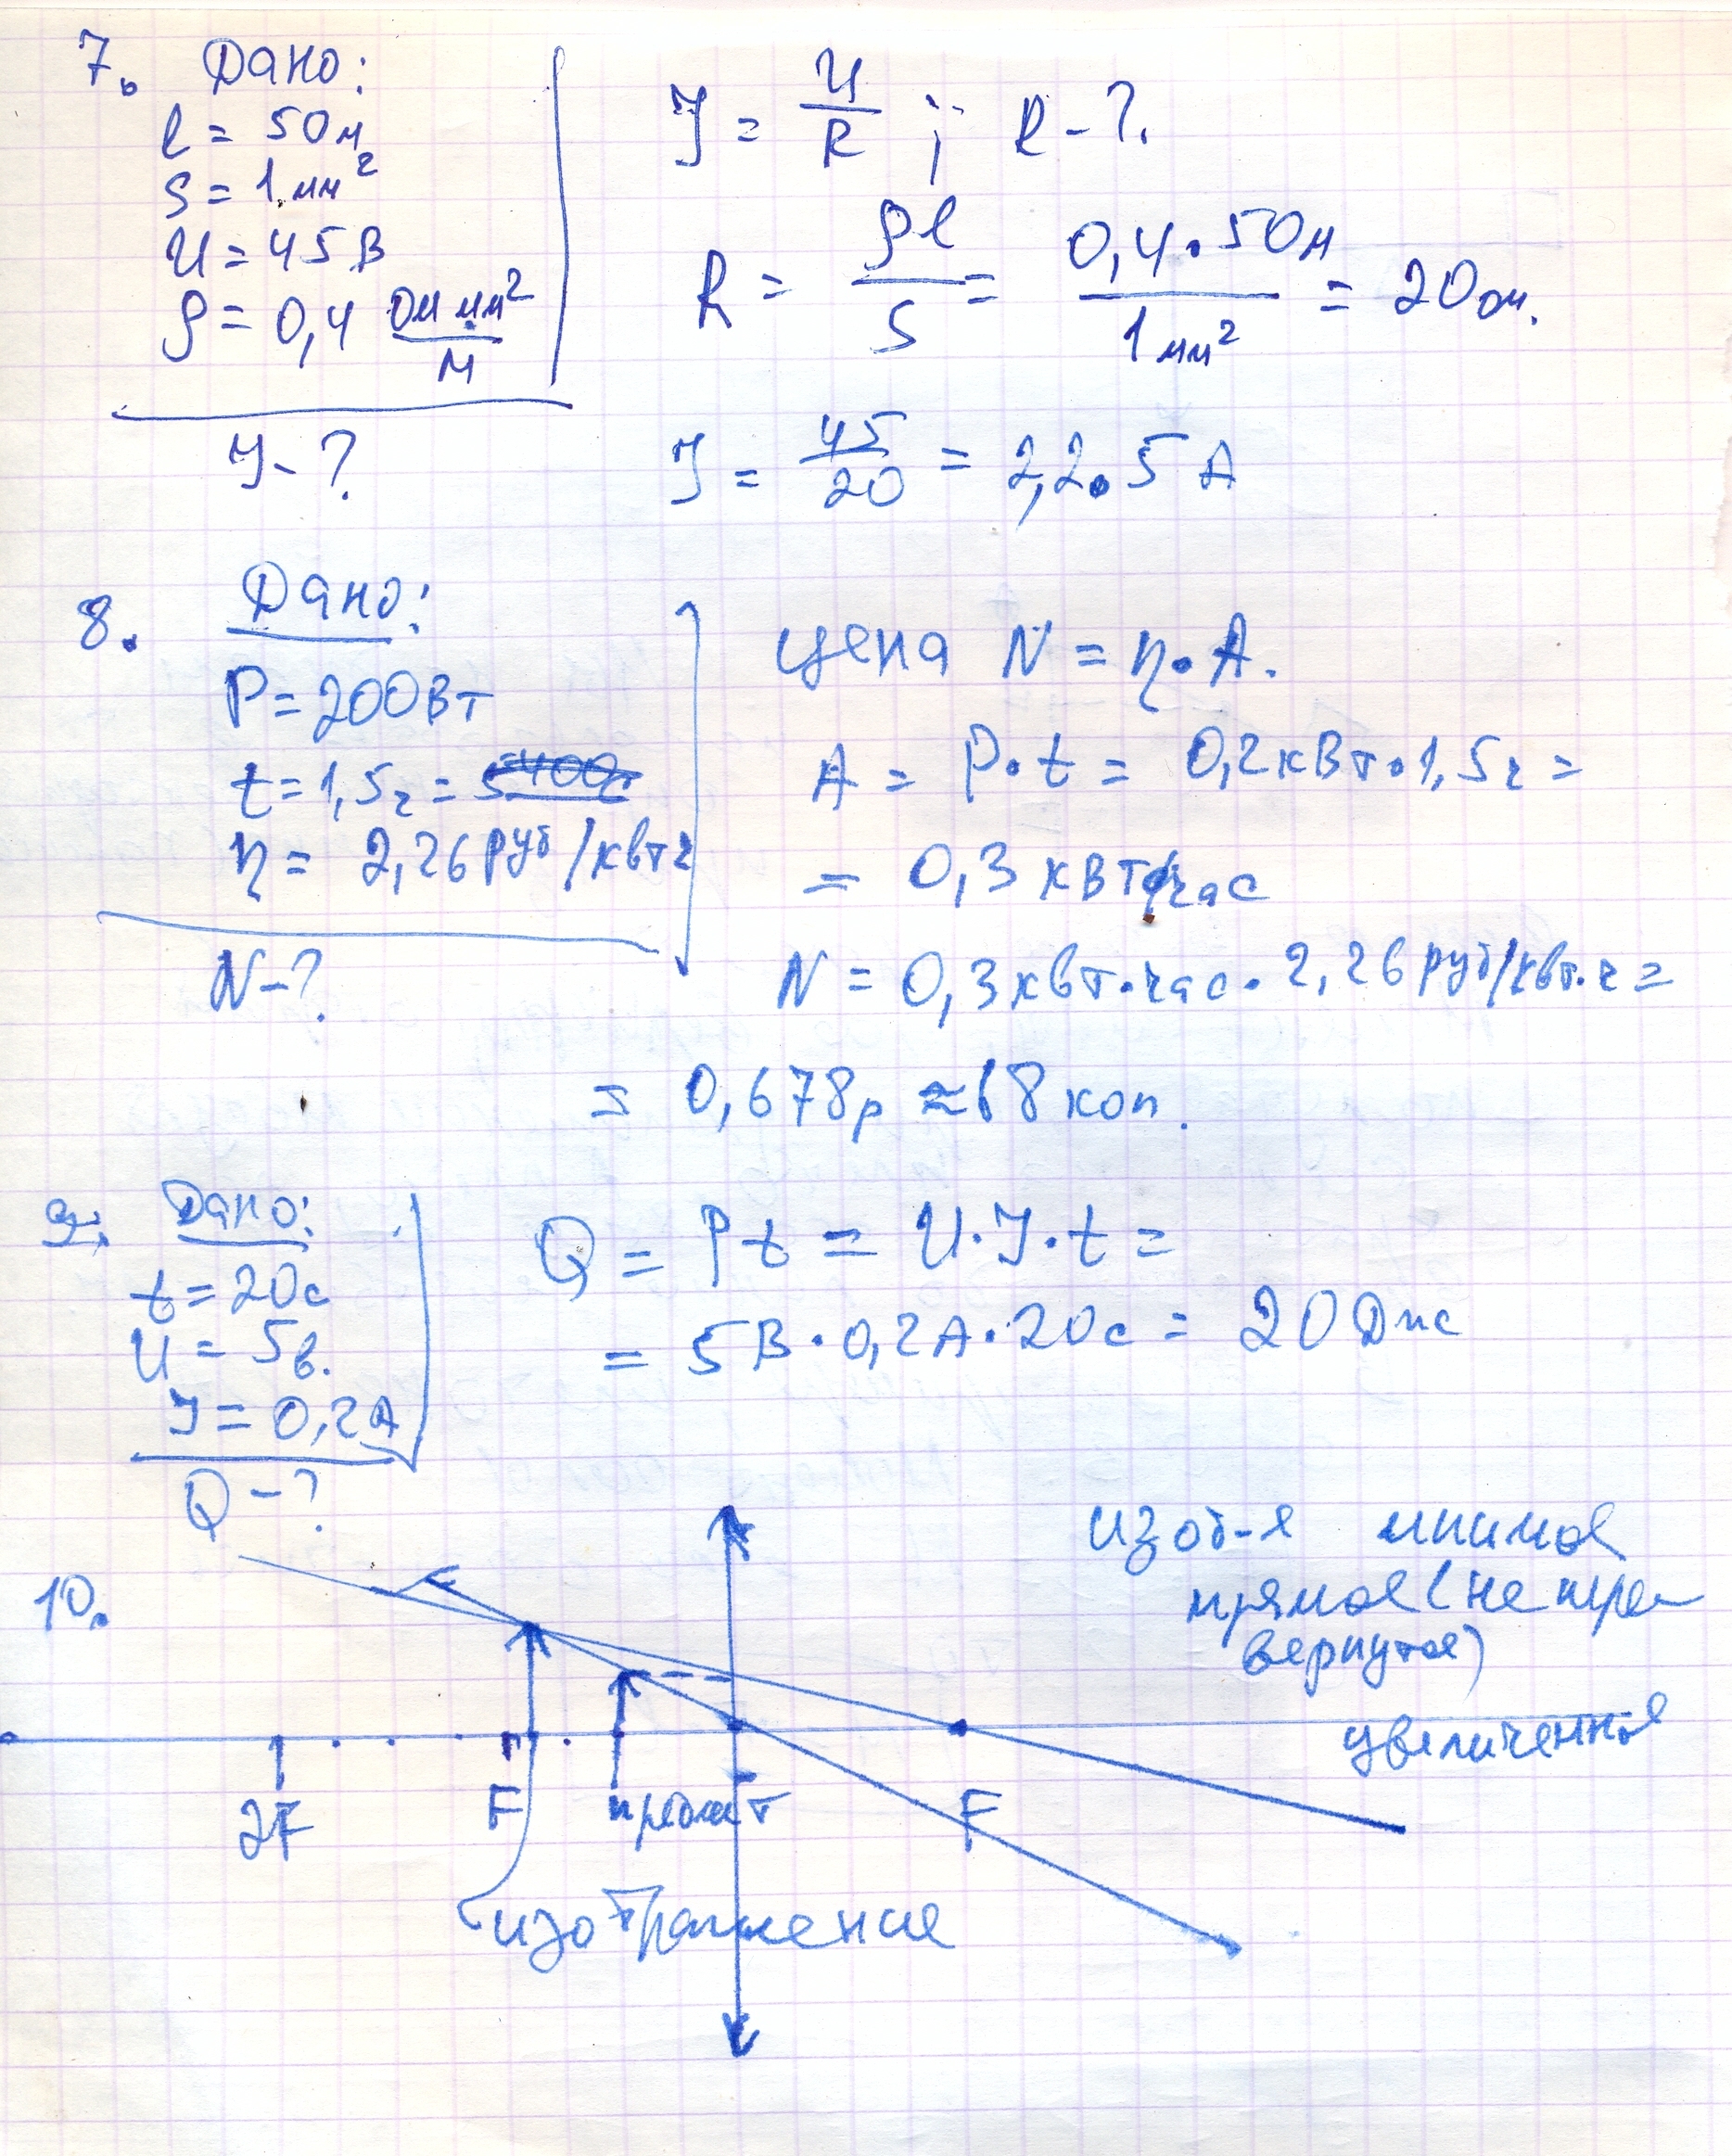 7. Дано:
l = 50м
S = 1 мм²
U = 45 В
ρ = 0,4 Ом мм²/м
I - ?
I = U/R ; R - ?.
R = ρl/S = 0,4 · 50м/1 мм² = 20 ом.
I = 45/20 = 2,2.5 А
8. Дано:
P = 200Вт
t = 1,5ч = 5400с
η = 2,26 руб/квтч
N - ?
цена N = η · A.
A = P · t = 0,2 кВт · 1,5ч =
= 0,3 квт·час
N = 0,3 квт·час · 2,26 руб/квт.ч =
= 0,678р ≈ 68 коп.
9. Дано:
t = 20с
U = 5в.
I = 0,2А
Q - ?
Q = Pt = U · I · t =
= 5В · 0,2А · 20с = 20 Дж
10.
изоб-е мнимое
прямое (не пере
вернутое)
увеличенное
2F F предмет F
изображение